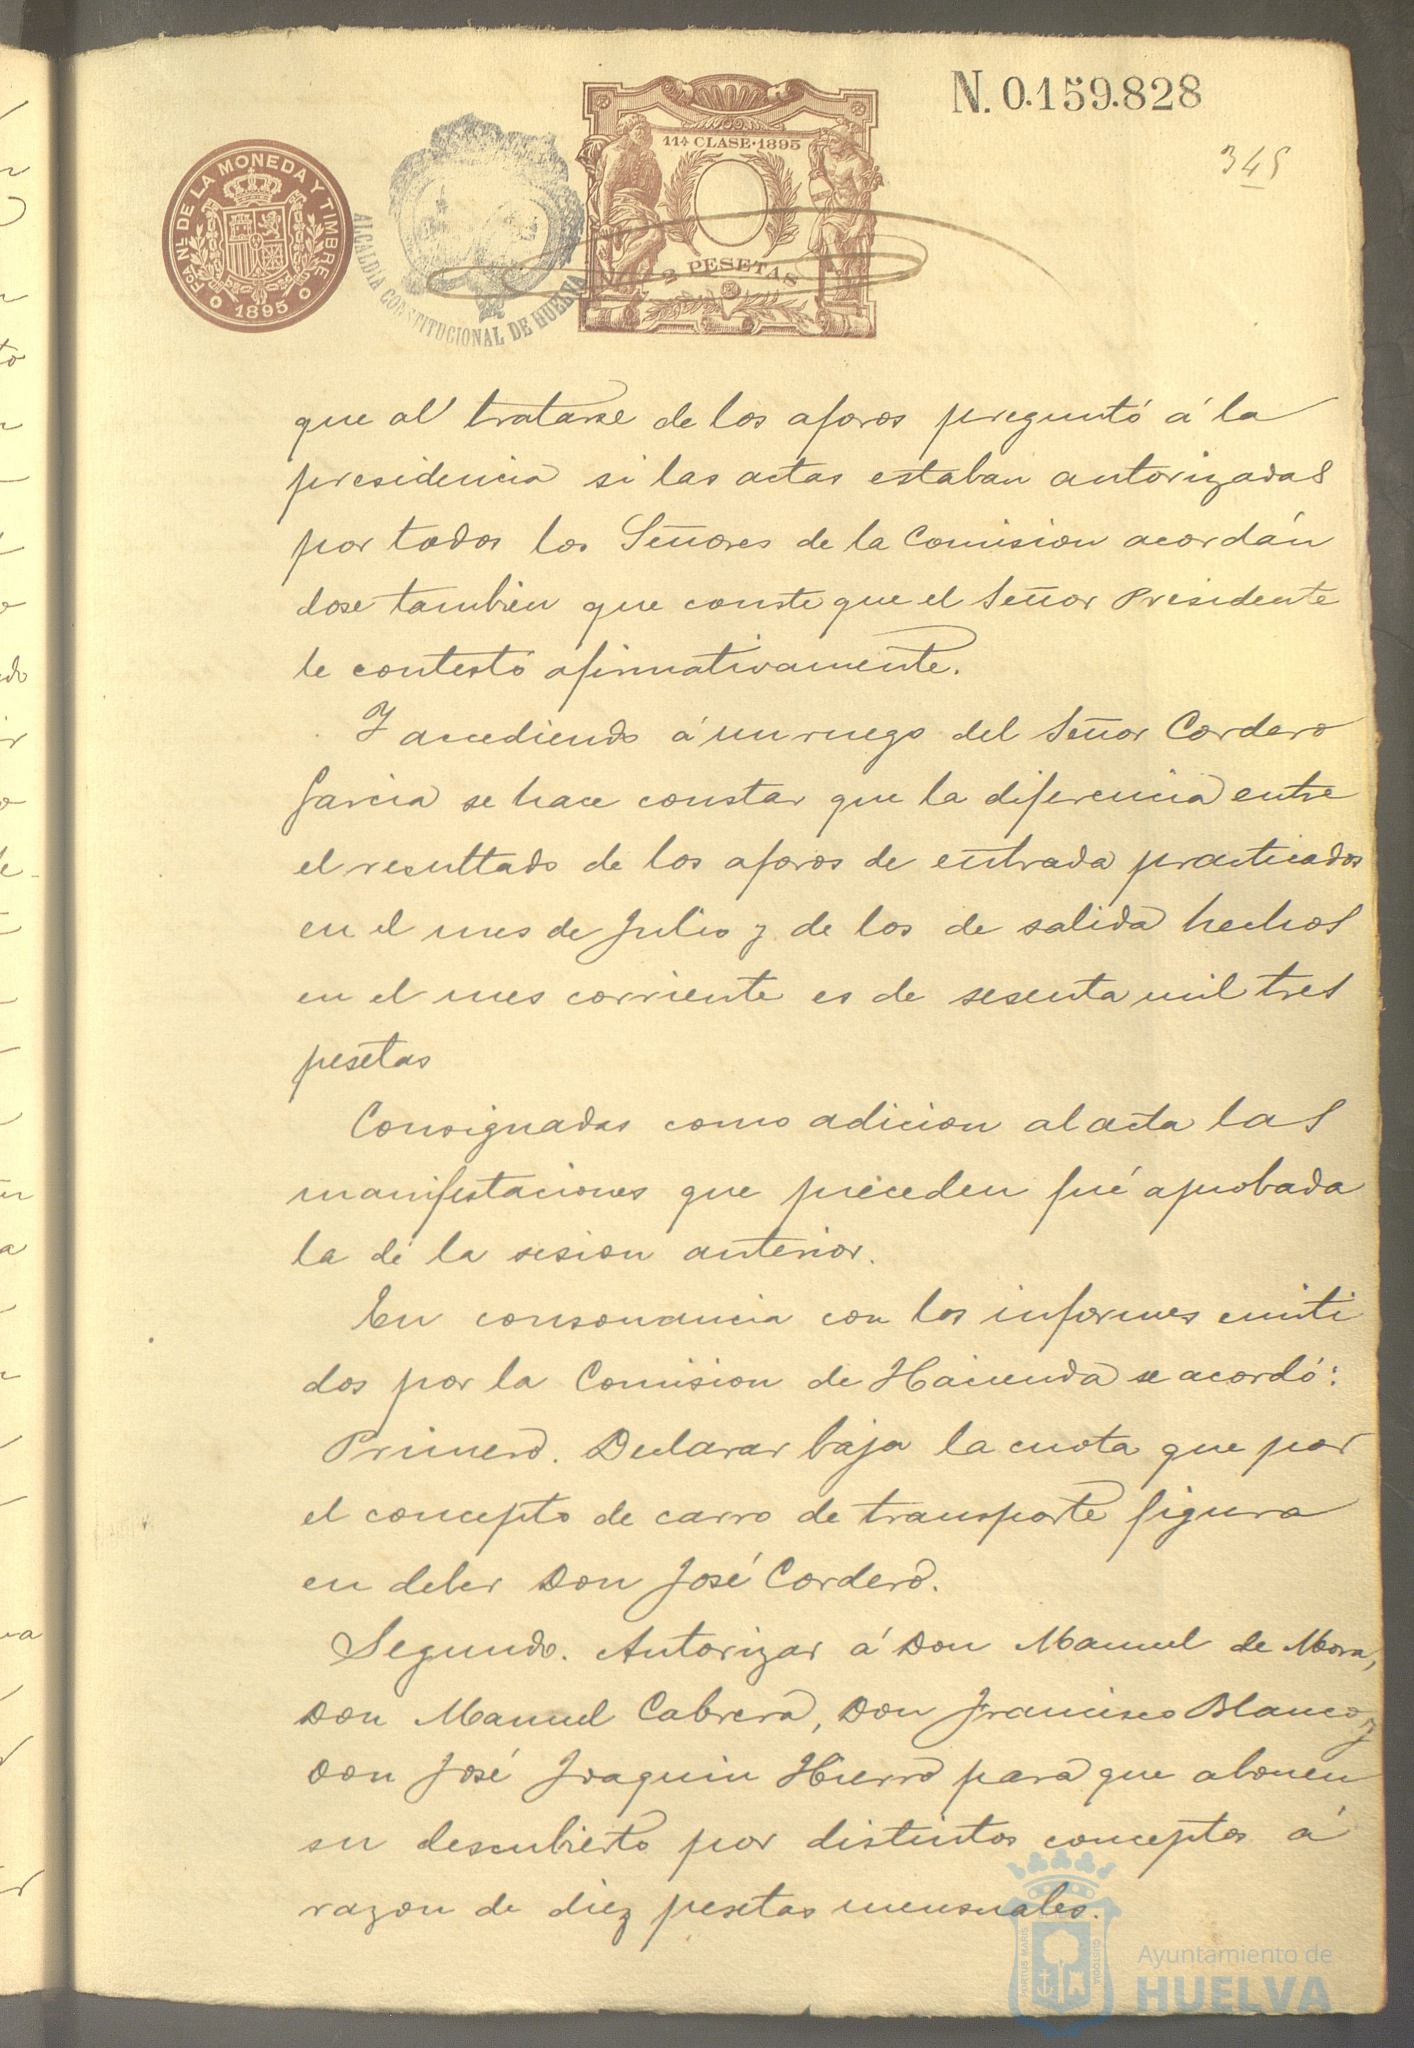 N. 0.159.828
345
FCA NL DE LA MONEDA Y TIMBRE
1895
ALCALDIA CONSTITUCIONAL DE HUELVA
11ª CLASE·1895
2 PESETAS
que al tratarse de los aforos preguntó á la
presidencia si las actas estaban autorizadas
por todos los Señores de la Comision acordán
dose tambien que conste que el Señor Presidente
le contestó afirmativamente.
Y accediendo á un ruego del Señor Cordero
Garcia se hace constar que la diferencia entre
el resultado de los aforos de entrada practicados
en el mes de Julio y de los de salida hechos
en el mes corriente es de sesenta mil tres
pesetas
Consignadas como adicion al acta las
manifestaciones que preceden fué aprobada
la de la sesion anterior.
En consonancia con los informes emiti
dos por la Comision de Hacienda se acordó:
Primero. Declarar baja la cuota que por
el concepto de carro de transporte figura
en deber Don José Cordero.
Segundo. Autorizar á Don Manuel de Mora,
Don Manuel Cabrera, Don Francisco Blanco y
Don José Joaquin Hierro para que abonen
su descubierto por distintos conceptos á
razon de diez pesetas mensuales.
PORTUS MARIS
CUSTODIA
Ayuntamiento de
HUELVA